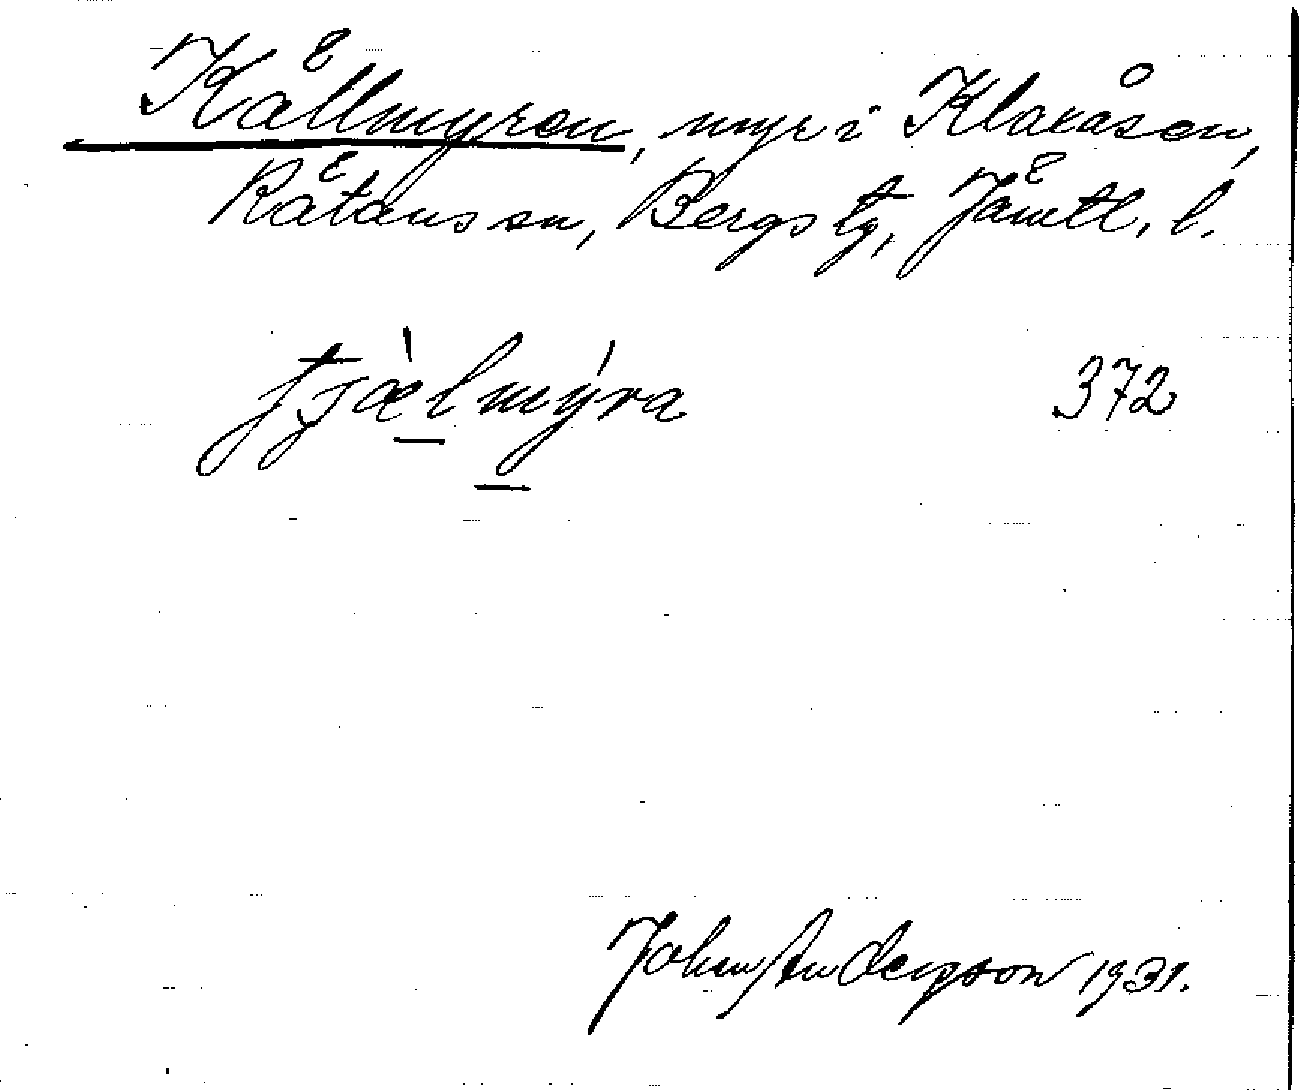 Källmyren, myr i Klaxåsen,
Rätans sn, Bergs tg, Jämtl. l.
372
John Andersson 1931.